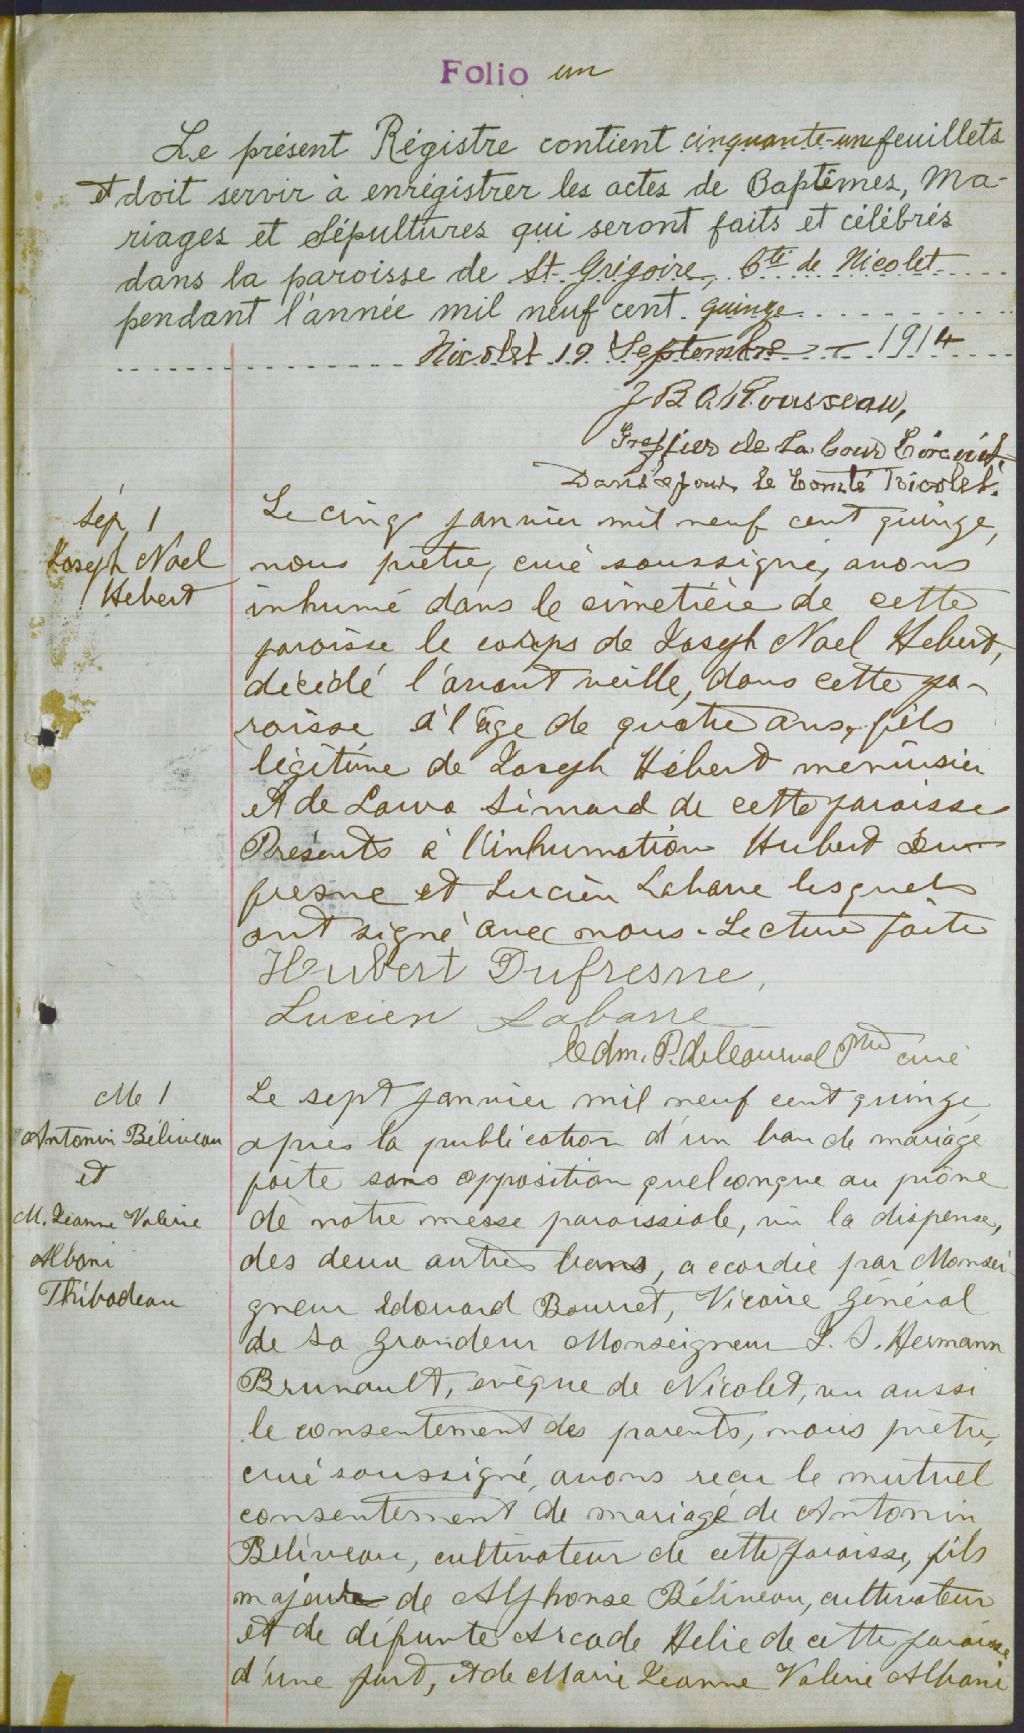 Folio un
Le présent Régistre contient cinquante-un feuillets
et doit servir à enrégistrer les actes de Baptêmes, Ma-
riages et Sépultures qui seront faits et célébrés
dans la paroisse de St. Grégoire, Cté de Nicolet
pendant l'année mil neuf cent quinze
Nicolet 19 Septembre - 1914
J B O Rousseau,
Greffier de La Cour Circuit
Dans & pour le Comté Nicolet.
Sép 1
Joseph Noel
Hebert
Le cinq janvier mil neuf cent quinze,
nous prêtre, curé soussigné, avons
inhumé dans le cimetière de cette
paroisse le corps de Joseph Noel Hebert,
décédé l'avant veille, dans cette pa-
roisse à l'âge de quatre ans, fils
légitime de Joseph Hébert menuisier
et de Laura Simard de cette paroisse
Présents à l'inhumation Hubert Du-
fresne et Lucien Labarre lesquels
ont signé avec nous. Lecture faite
Hubert Dufresne,
Lucien Labarre
Edm. P. de Courval Ptre curé
M 1
Antonin Béliveau
et
M. Jeanne Valerie
Albani
Thibodeau
Le sept janvier mil neuf cent quinze,
après la publication d'un ban de mariage
faite sans opposition quelconque au prône
de notre messe paroissiale, vu la dispense,
des deux autres bans, accordée par Monsei-
gneur Edouard Bourret, Vicaire Général
de Sa Grandeur Monseigneur J. S. Hermann
Brunault, evêque de Nicolet, vu aussi
le consentement des parents, nous prêtre,
curé soussigné, avons reçu le mutuel
consentement de mariage de Antonin
Beliveau, cultivateur de cette paroisse, fils
majeur de Alphonse Béliveau, cultivateur
et de défunte Arcade Helie de cette paroisse
d'une part, et de Marie Jeanne Valerie Albani